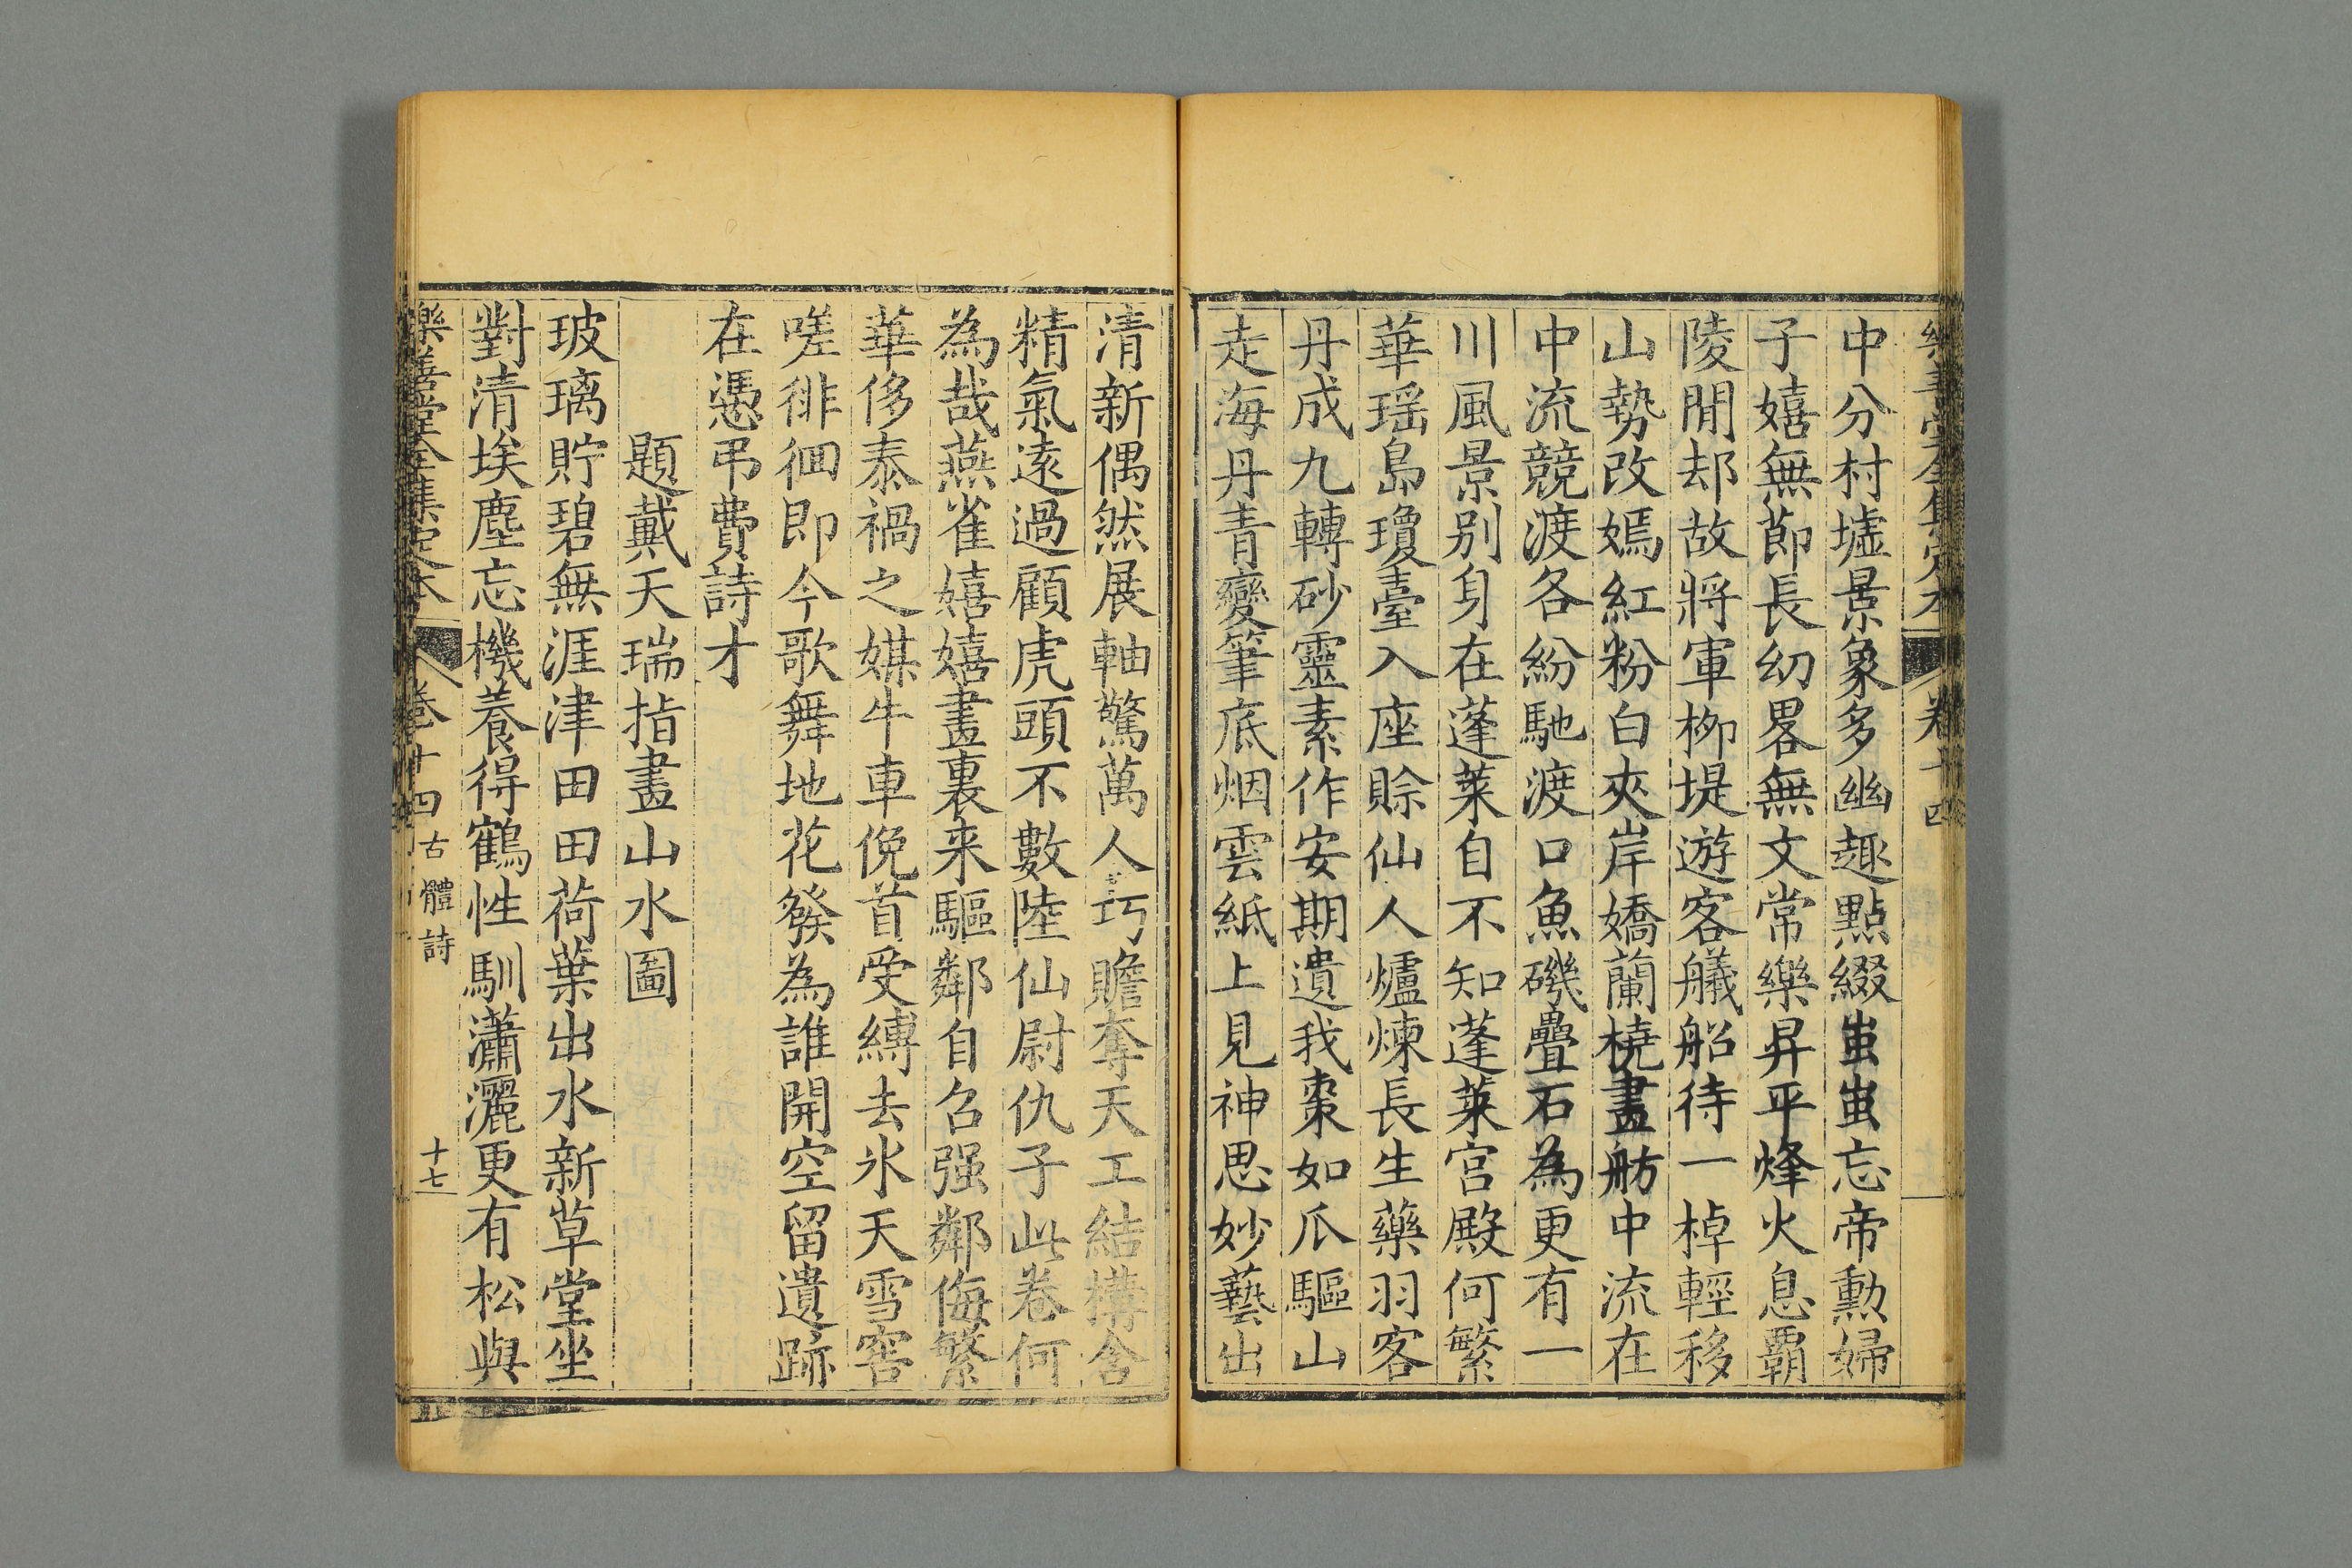 中分村墟景象多幽趣點綴蚩蚩忘帝勳婦
子嬉無節長幼畧無文常樂昇平烽火息霸
陵閒却故將軍柳堤遊客艤船待一棹輕移
山勢改嫣紅粉白夾岸嬌蘭橈畫舫中流在
中流競渡各紛馳渡口魚磯疊石為更有一
川風景别身在蓬萊自不知蓬萊宫殿何繁
華瑶島瓊臺入座賒仙人爐煉長生藥羽客
丹成九轉砂靈素作安期遺我棗如瓜驅山
走海丹青變筆底烟雲紙上見神思妙藝出
清新偶然展軸驚萬人巧贍奪天工結構含
精氣遠過顧虎頭不數陸仙尉仇子此卷何
為哉燕雀嬉嬉畫裏来驅鄰自召强鄰侮繁
華侈泰禍之媒牛車俛首受縛去氷天雪窖
嗟徘徊即今歌舞地花發為誰開空留遺跡
在憑弔費詩才
題戴天瑞指畫山水圖
玻璃貯碧無涯津田田荷葉出水新草堂坐
對清埃塵忘機養得鶴性馴瀟灑更有松與
樂善堂全集定本 卷十四 古體詩 十七